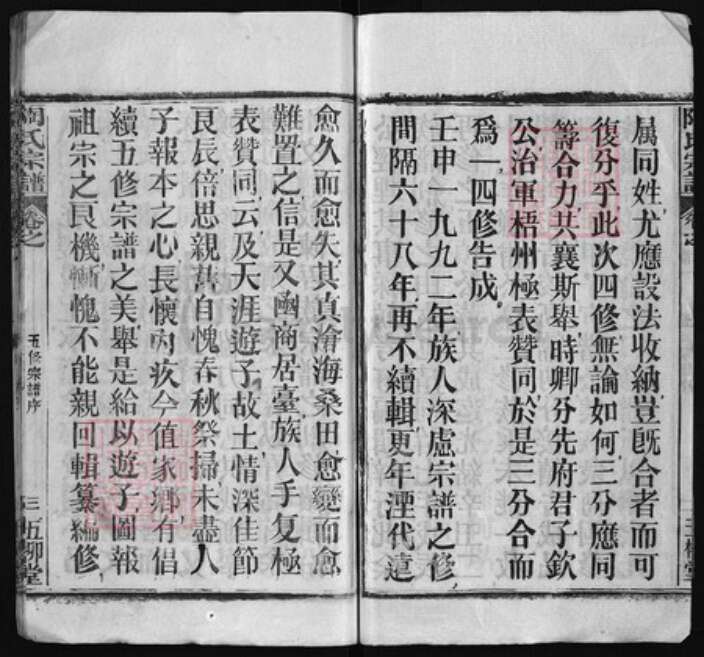 屬同姓尤應設法收納豈既合者而可
復分乎此次四修無論如何三分應同
籌合力共襄斯舉時卿分先府君子欽
公治軍梧州極表贊同於是三分合而
爲一四修告成
壬申一九九二年族人深慮宗譜之修
間隔六十八年再不續輯更年湮代遠
愈久而愈失其真滄海桑田愈變而愈
難置之信是又函商居臺族人手复極
表贊同云及天涯遊子故土情深佳節
良辰倍思親甚自愧春秋祭掃未盡人
子報本之心長懷内疚今值家鄉有倡
續五修宗譜之美舉是給以遊子圖報
祖宗之良機慚愧不能親回輯纂編修
陶氏宗譜
卷之
五修宗譜序
三
五柳堂